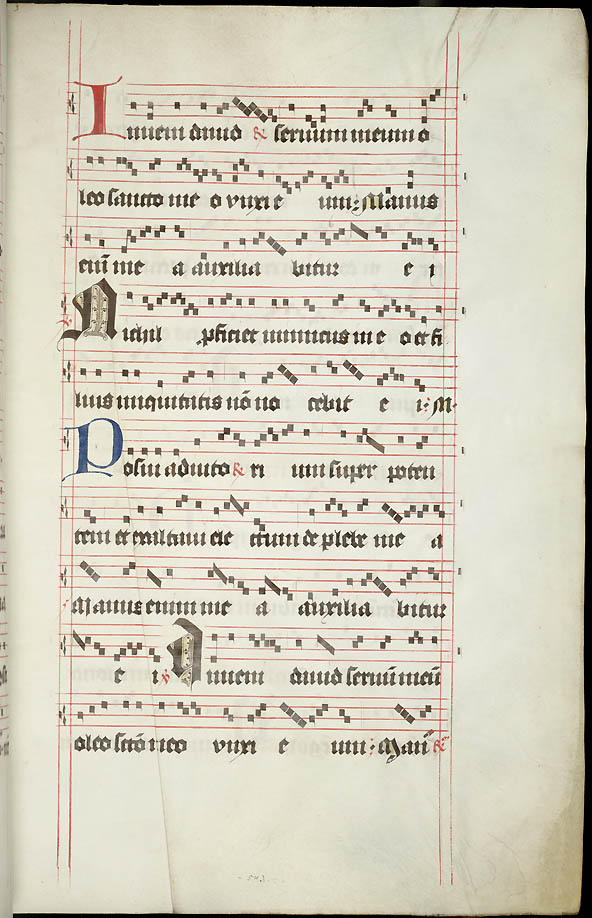 Inueni dauid ℟ seruum meum o
leo sancto me o vnxi e um: Manus
em̄ me a auxilia bitur e i
Nichil ꝓficiet inimicus in e o et fi
lius iniquitatis nō no cebit e i: M
Posui adiuto ℟ ri um super poten
tem et exaltaui ele ctum de plebe me a
Manus enim me a auxilia bitur
e i ℣ Inueni dauid seruū meū
oleo scō̄ meo vnxi e um: Man̄ ℟